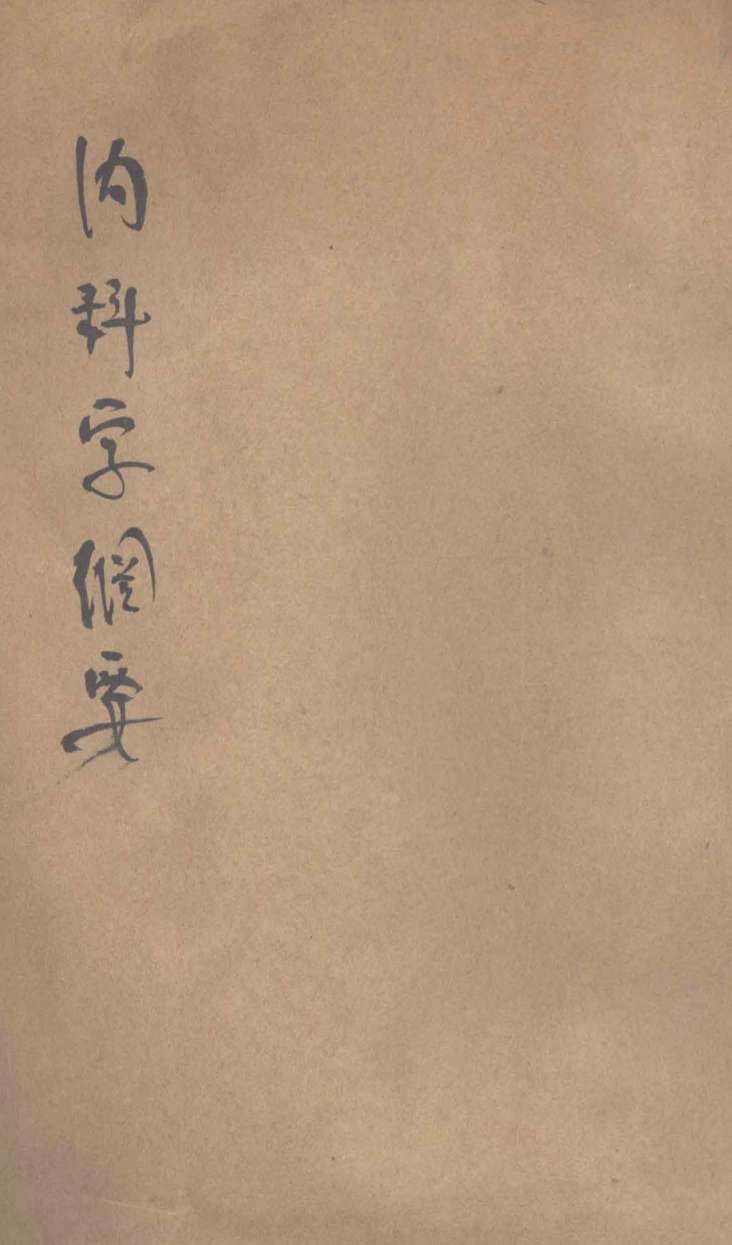 内科学綱要